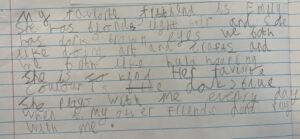 My favorite friend is Emily
She has blonde light hair and she
has dark brown eyes we both
like doing art and crafts and
we both like hula hooping
She is kind Her favorite
colour is dark blue
She plays with me every day
when my other friends dont play
with me.